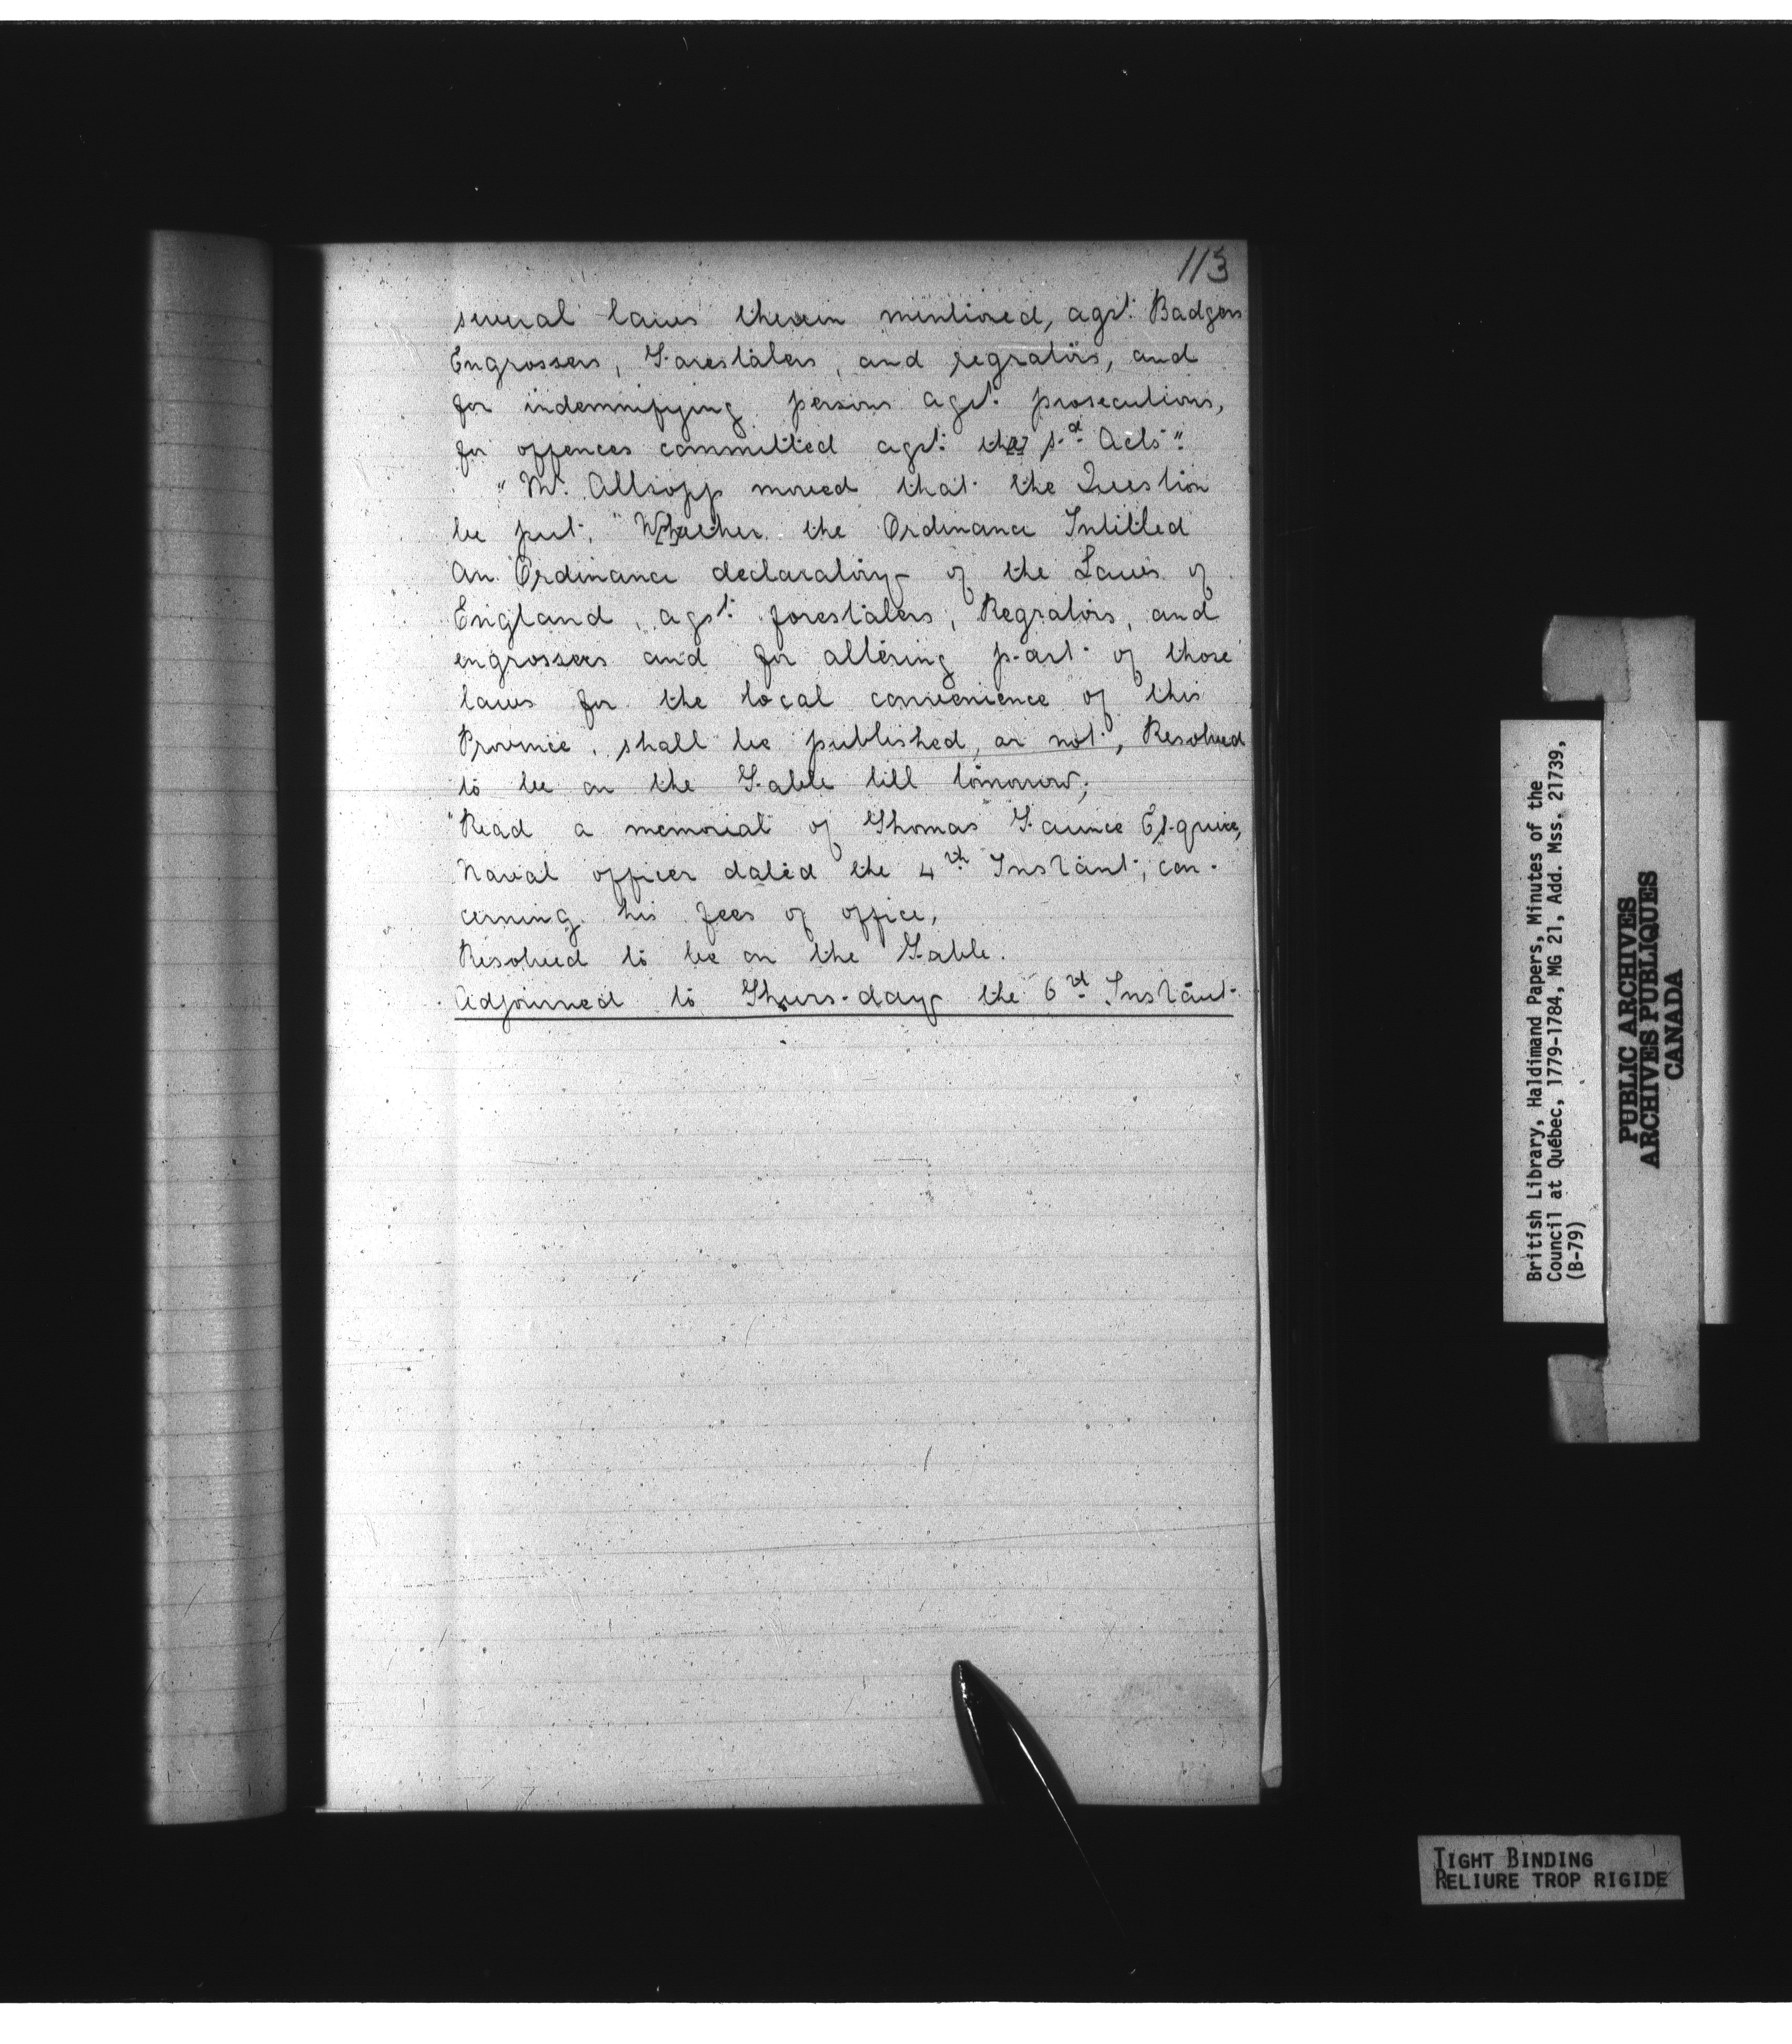 113
several laws therein mentioned, agst. Badgers
Engrossers, Forestalers, and regrators, and
for indemnifying persons agst. prosecutions,
for offences committed agst. the sd. Acts"
"Mr. Allsopp moved that the Question
be put, "Whether the Ordinance Intitled
An Ordinance declaratory of the Laws of
England, agst. forestalers, Regrators, and
engrossers and for altering part of those
laws for the local convenience of this
Province, shall be published, or not, Resolved
to be on the Table till tomorrow;
"Read a memorial of Thomas Faunce Esquire,
Naval officer dated the 4th Instant, con-
cerning his fees of office,
Resolved to be on the Table.
Adjourned to Thurs-day the 6th Instant.
British Library, Haldimand Papers, Minutes of the
Council at Québec, 1779-1784, MG 21, Add. Mss. 21739,
(B-79)
PUBLIC ARCHIVES
ARCHIVES PUBLIQUES
CANADA
TIGHT BINDING
RELIURE TROP RIGIDE